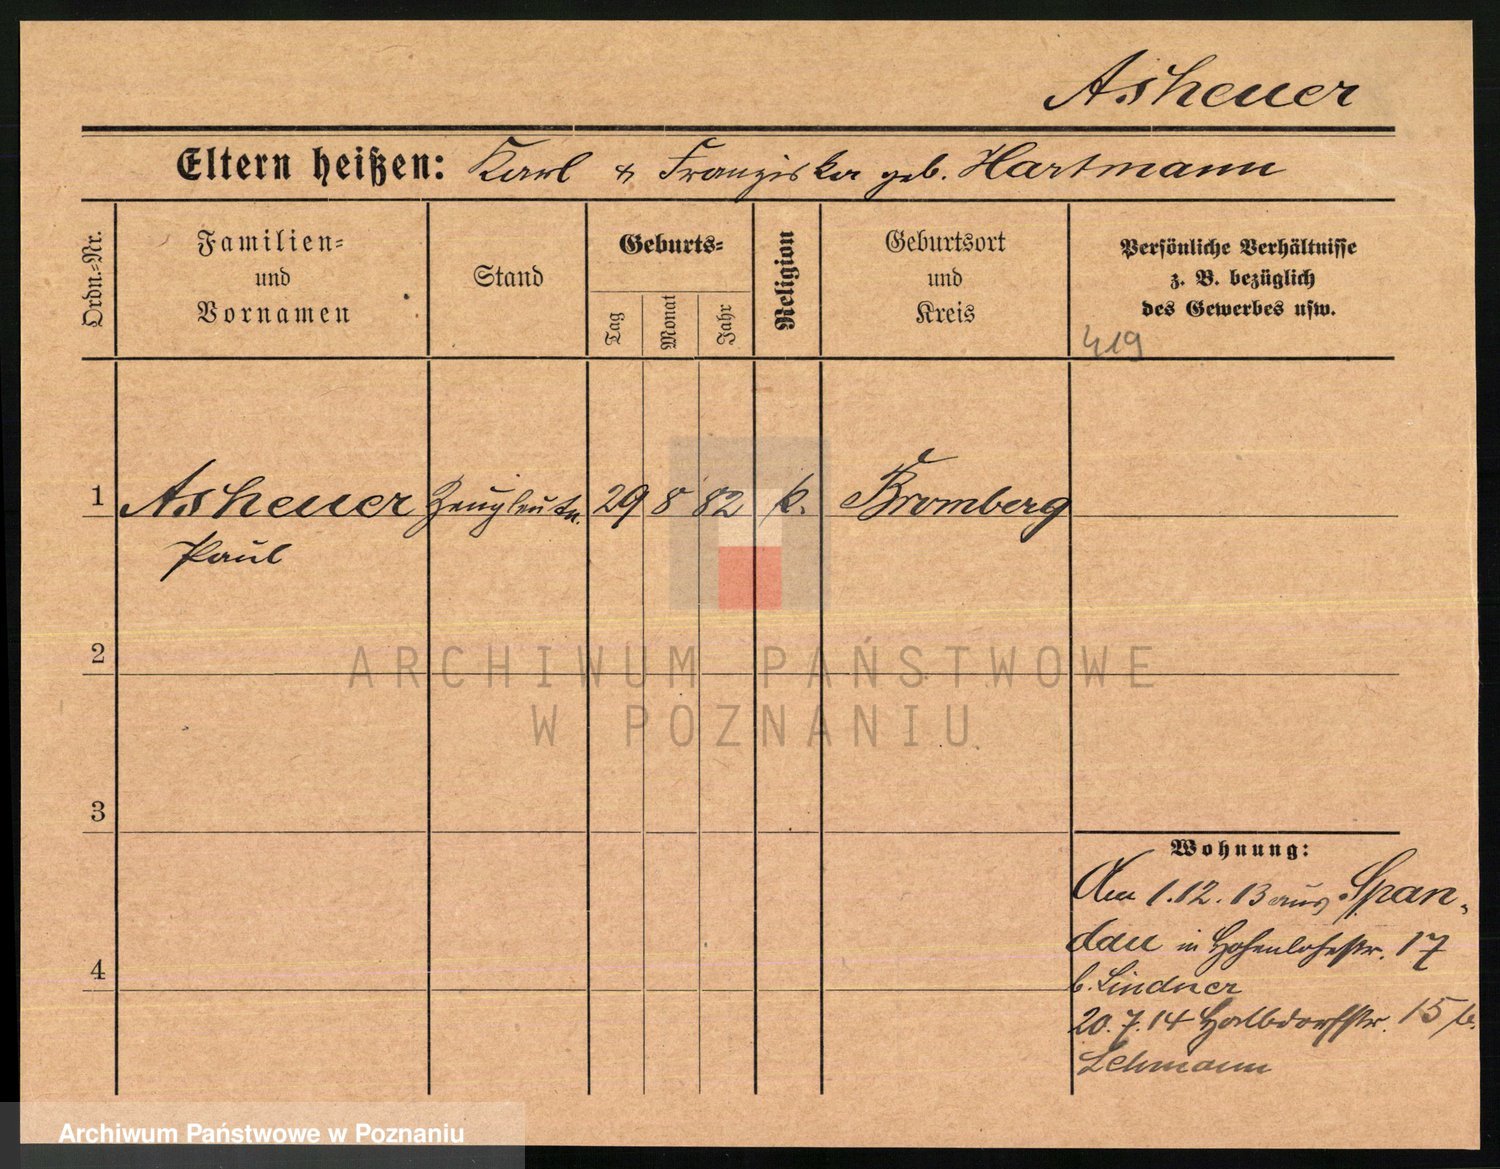 Asheuer
Eltern heißen: Karl & Franziska geb. Hartmann
Ordn.-Nr.
Familien-
und
Vornamen
Stand
Geburts-
Tag
Monat
Jahr
Religion
Geburtsort
und
Kreis
Persönliche Verhältnisse
z. B. bezüglich
des Gewerbes usw.
419
1 Asheuer Zeugleutn. 29 8 82 k. Bromberg
Paul
2
3
4
ARCHIWUM PAŃSTWOWE
W POZNANIU
Wohnung:
Am 1.12.13 aus Span-
dau in Hohenlohestr. 17
b. Lindner
20.7.14 Halbdorfstr. 15 b.
Lehmann
Archiwum Państwowe w Poznaniu